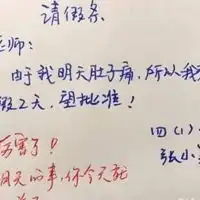 请假条
老师：
由于我明天肚子痛，所以我
假2天，望批准！
四（1）
张小
厉害了！
明天的事，你今天就